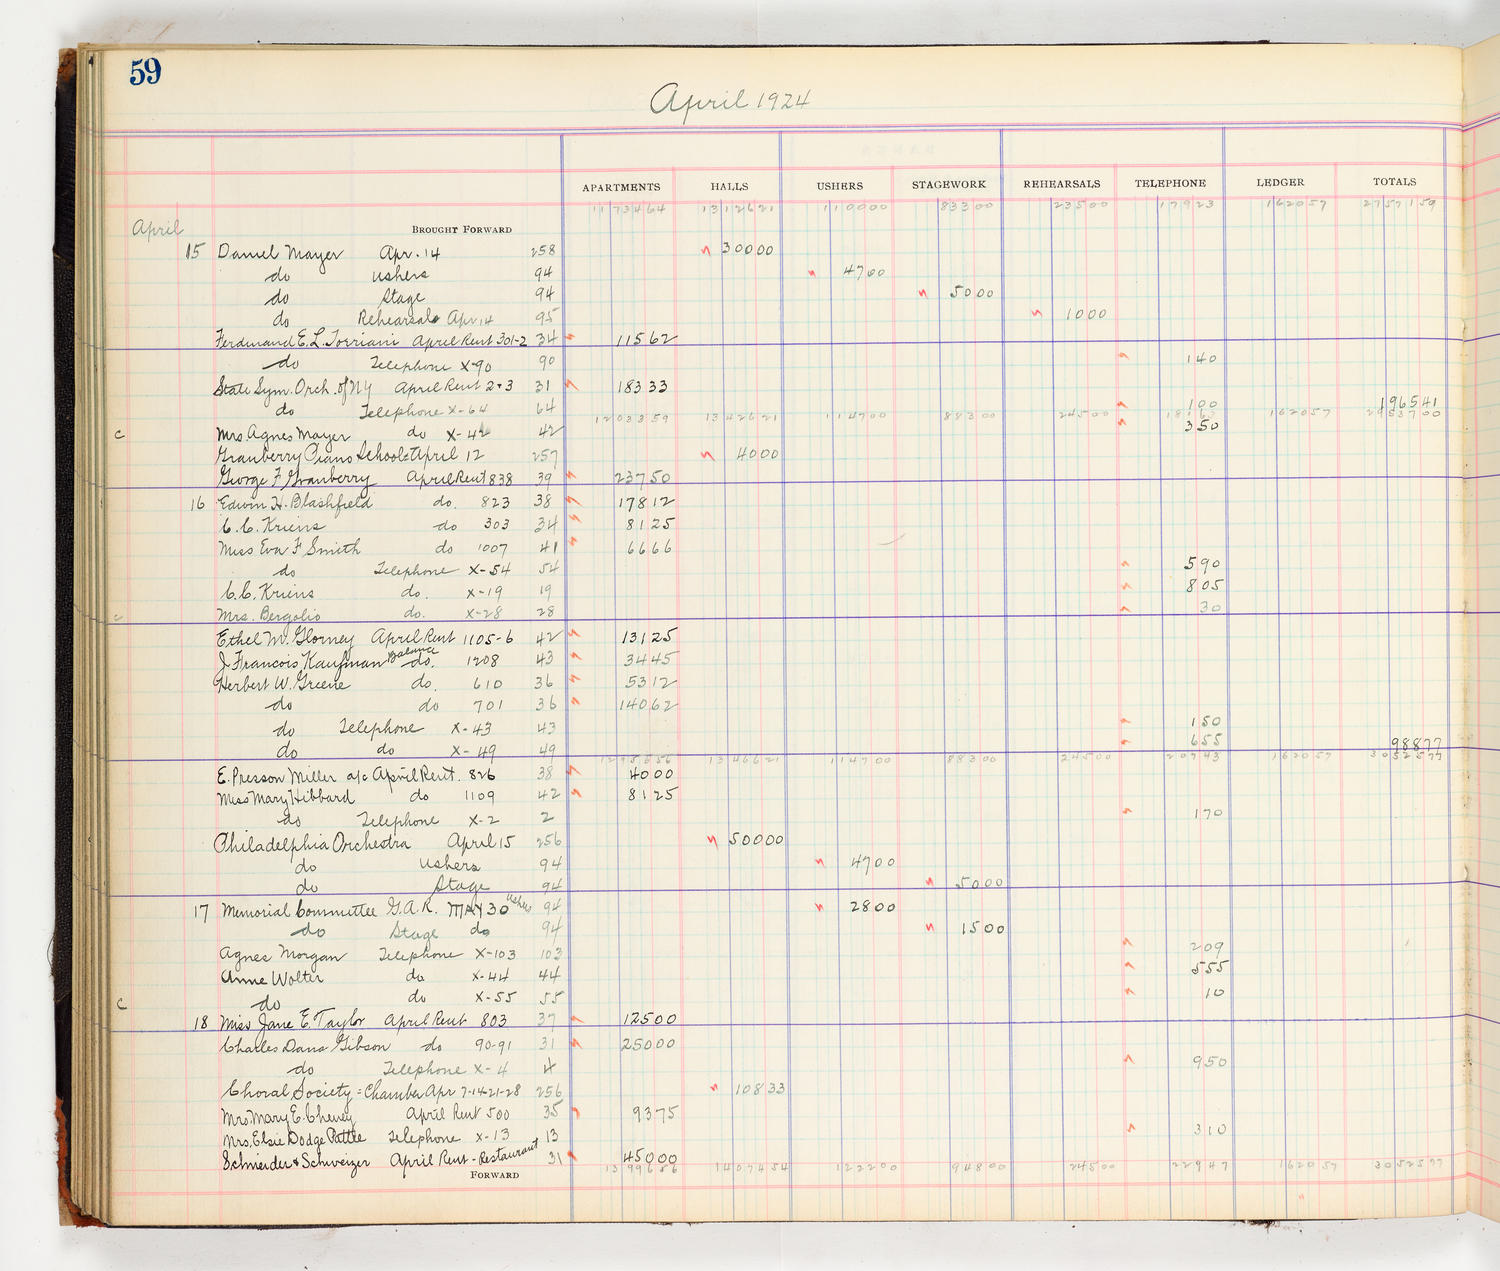 59
April 1924
APARTMENTS HALLS USHERS STAGEWORK REHEARSALS TELEPHONE LEDGER TOTALS
1173464 1312621 110000 83300 23500 17923 162057 2757159
April BROUGHT FORWARD
15 Daniel Mayer Apr. 14 258 30000
do ushers 94 4700
do Stage 94 5000
do Rehearsals Apr 14 95 1000
Ferdinand E. L. Torriani April Rent 301-2 34 11562
do Telephone X-90 90 140
State Sym. Orch. of NY April Rent 2+3 31 18333
do Telephone X-64 64 100 196541
1203359 1342621 114700 88300 24500 18163 162057 2953700
c Mrs. Agnes Mayer do X-42 42 350
Granberry Piano School = April 12 257 4000
George F Granberry April Rent 838 39 23750
16 Edwin H. Blashfield do. 823 38 17812
C. C. Kriens do 303 34 8125
Miss Eva F Smith do 1007 41 6666
do Telephone X-54 54 590
C. C. Kriens do. X-19 19 805
c Mrs. Bergolio do. X-28 28 30
Ethel M. Glorney April Rent 1105-6 42 13125
J. Francois Kaufman balance do. 1208 43 3445
Herbert W. Greene do. 610 36 5312
do do 701 36 14062
do Telephone X-43 43 150
do do X-49 49 655 98877
1295656 1346621 114700 88300 24500 20743 162057 3052577
E. Presson Miller a/c April Rent. 826 38 4000
Miss Mary Hibbard do 1109 42 8125
do Telephone X-2 2 170
Philadelphia Orchestra April 15 256 50000
do ushers 94 4700
do Stage 94 5000
17 Memorial Committee G.A.R. MAY 30 ushers 94 2800
do Stage do 94 1500
Agnes Morgan Telephone X-103 103 209
Anne Wolter do X-44 44 555
c do do X-55 55 10
18 Miss Jane E. Taylor April Rent 803 37 12500
Charles Dana Gibson do 90-91 31 25000
do Telephone X-4 4 950
Choral Society = Chamber Apr 7-14-21-28 256 10833
Mrs. Mary E. Cheney April Rent 500 35 9375
Mrs. Elsie Dodge Pattee Telephone X-13 13 310
Schneider & Schweizer April Rent - Restaurant 31 45000
FORWARD 1399656 1407454 122200 94800 24500 22947 162057 3052577